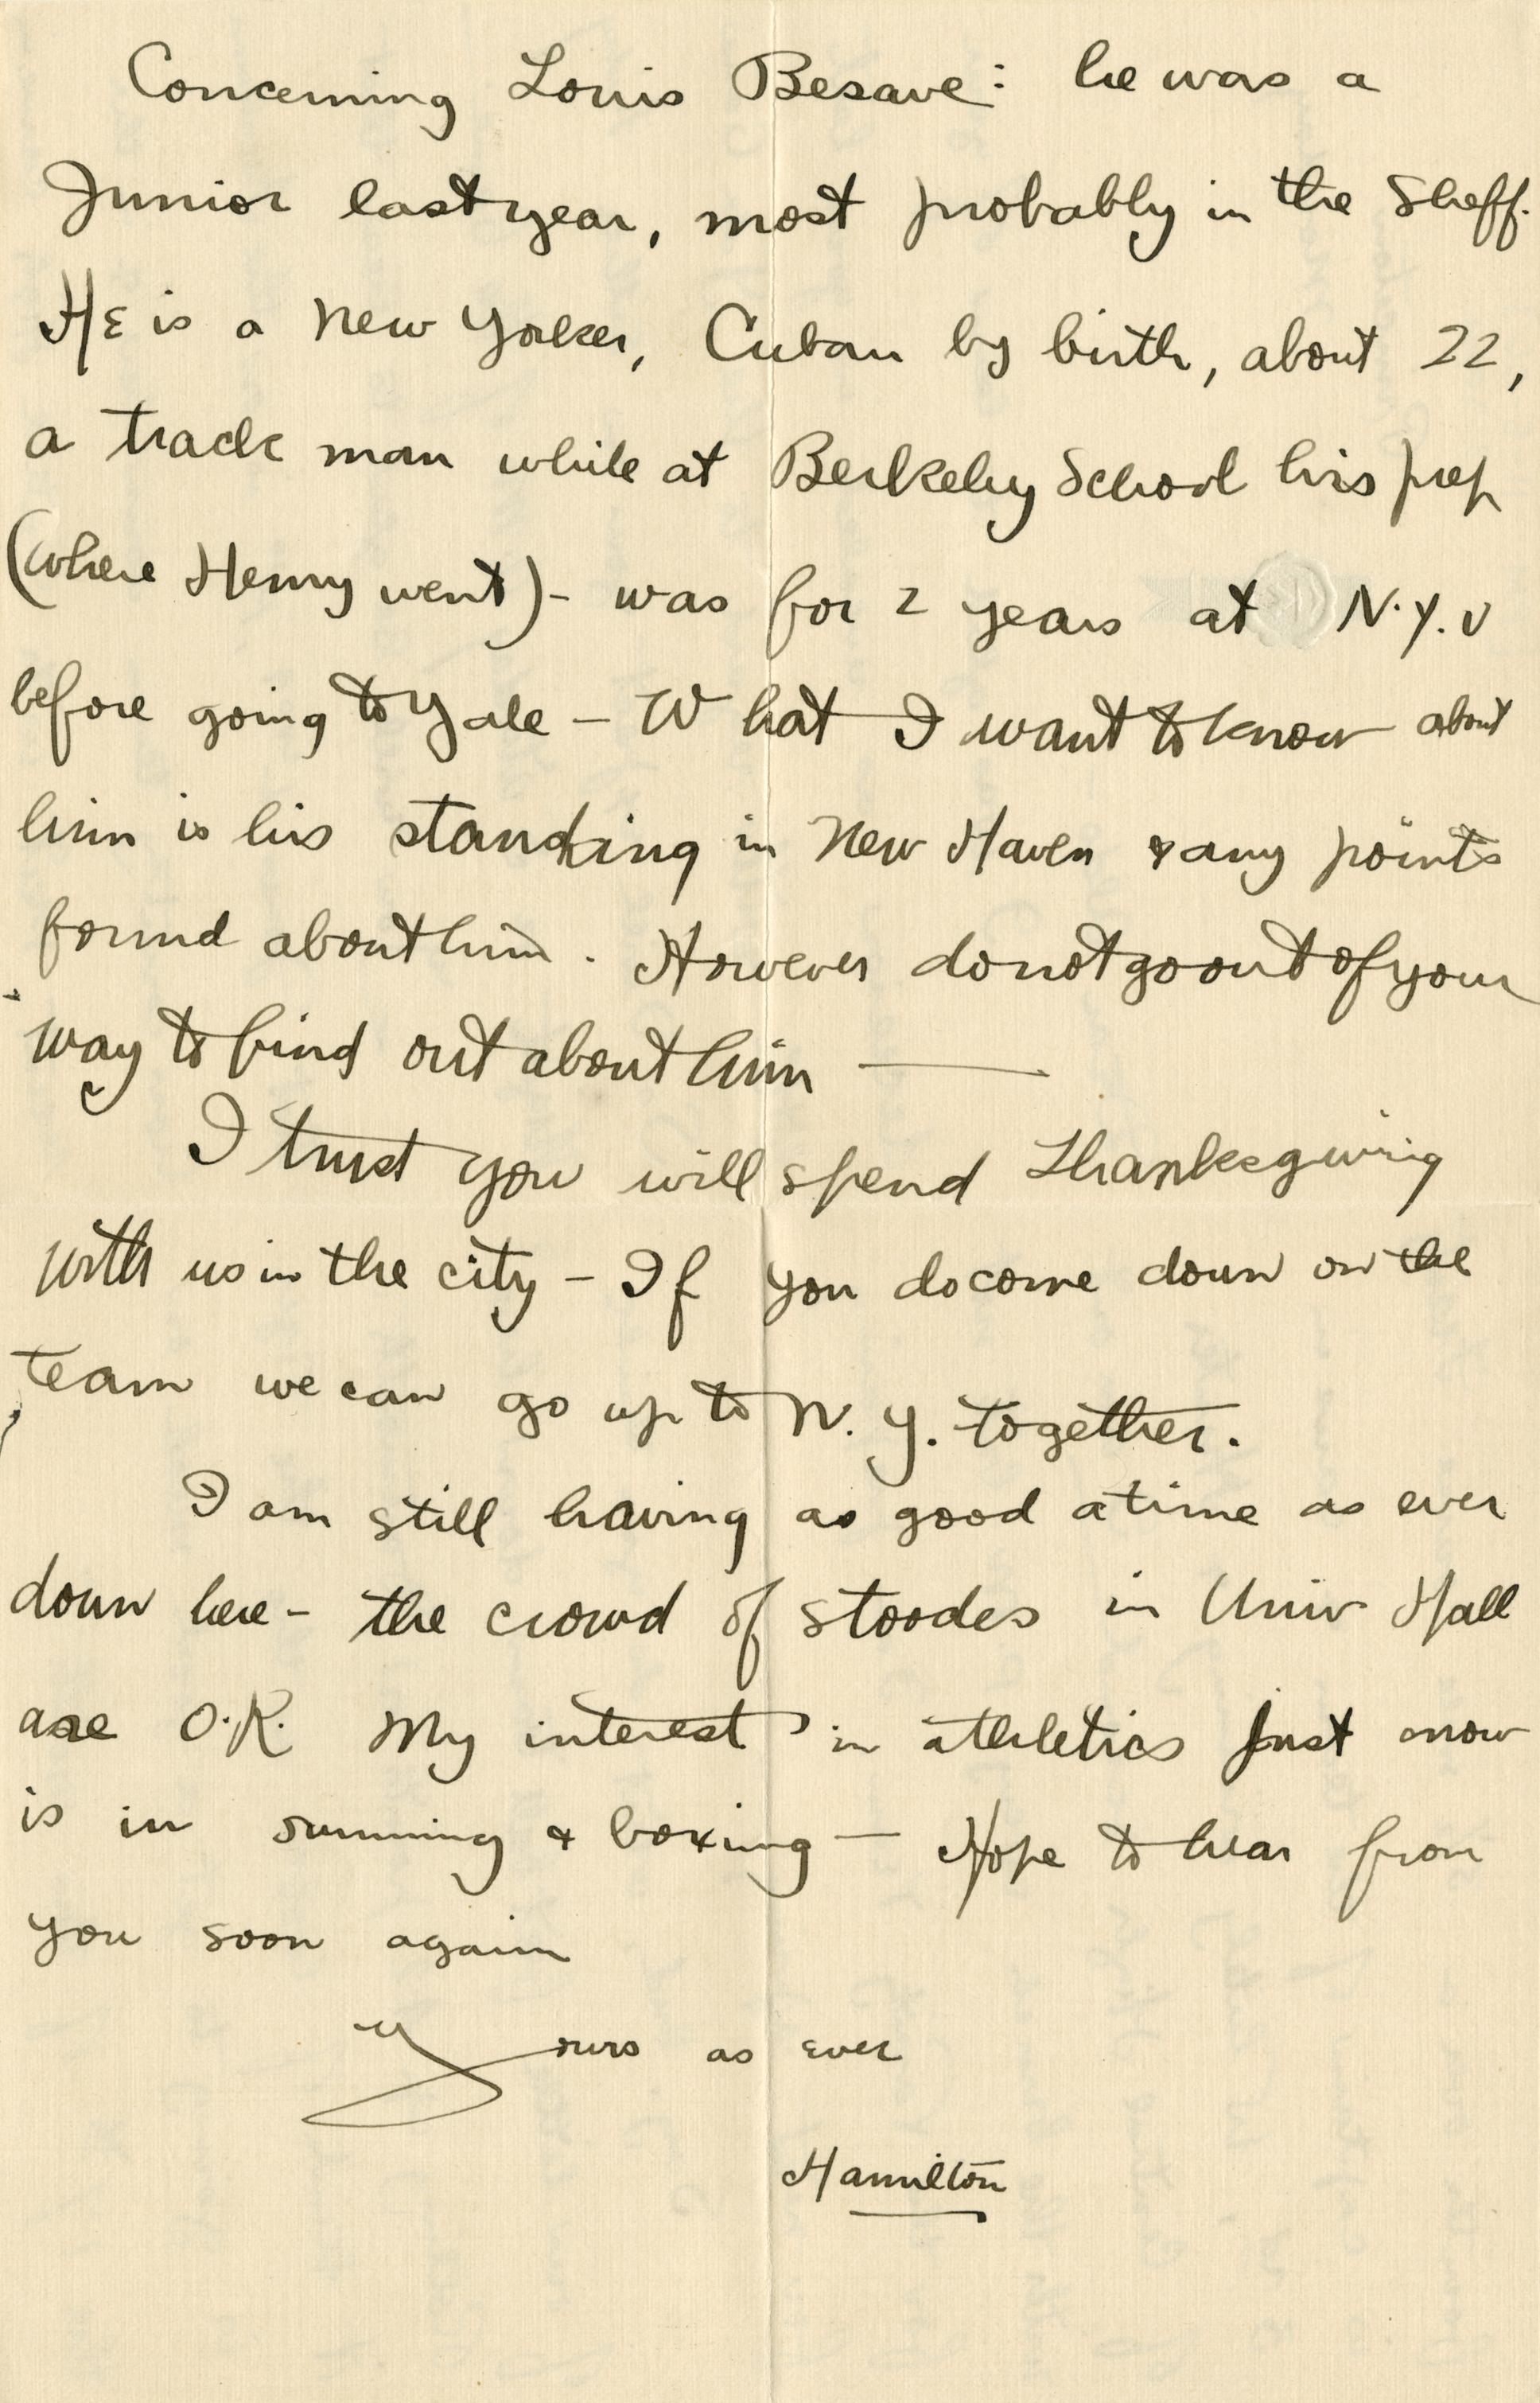 Concerning Louis Besave: he was a
Junior last year, most probably in the Sheff.
He is a New Yorker, Cuban by birth, about 22,
a track man while at Berkeley School his prep
(where Henry went) - was for 2 years at N.Y.U
before going to Yale - What I want to know about
him is his standing in New Haven & any points
found about him. However do not go out of your
way to find out about him —
I trust you will spend Thanksgiving
with us in the city - If you do come down on the
team we can go up to N.Y. together.
I am still having as good a time as ever
down here - the crowd of stoodes in Univ Hall
are O.K. My interest in athletics just now
is in running & boxing — Hope to hear from
you soon again
Yours as ever
Hamilton